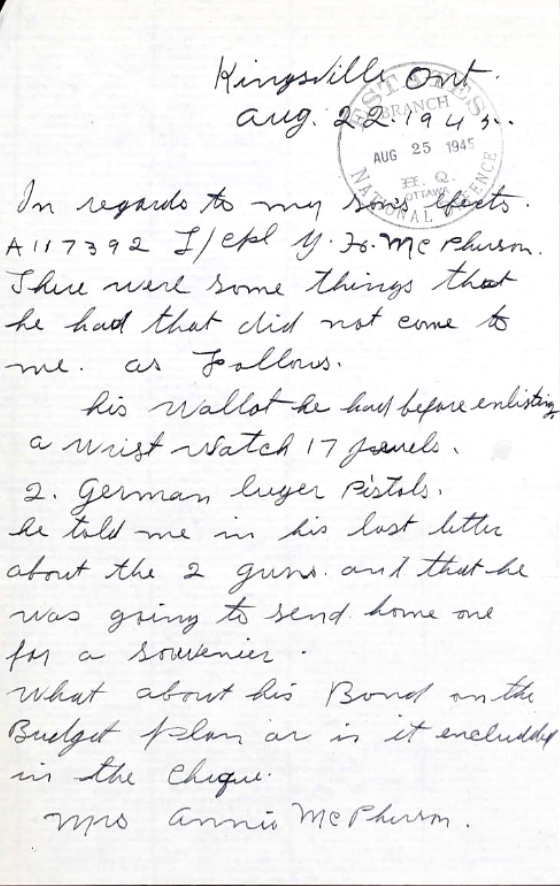 Kingsville Ont.
Aug. 22. 1945.
ESTATES
BRANCH
AUG 25 1945
H. Q.
OTTAWA
NATIONAL DEFENCE
In regards to my son's effects.
A117392 L/Cpl Y. Fr. McPherson.
There were some things that
he had that did not come to
me. as Follows.
his wallot he had before enlisting
a wrist watch 17 jewels.
2. German luger Pistols.
he told me in his last letter
about the 2 guns. and that he
was going to send home one
for a souvenier.
What about his Bond on the
Budget plan or is it encludded
in the Cheque.
Mrs Annie McPherson.